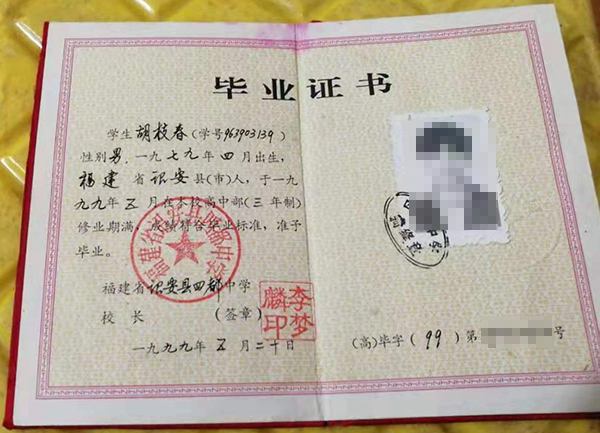 毕业证书
学生 胡枝春 (学号963903139)
性别男,一九七九年四月出生,
福建省诏安县(市)人,于一九
九九年五月在本校高中部(三年制)
修业期满,成绩符合毕业标准,准予
毕业。
福建省诏安县四都中学
校长 (签章)
李梦麟印
一九九九年五月二十日
(高)毕字(99)第 号